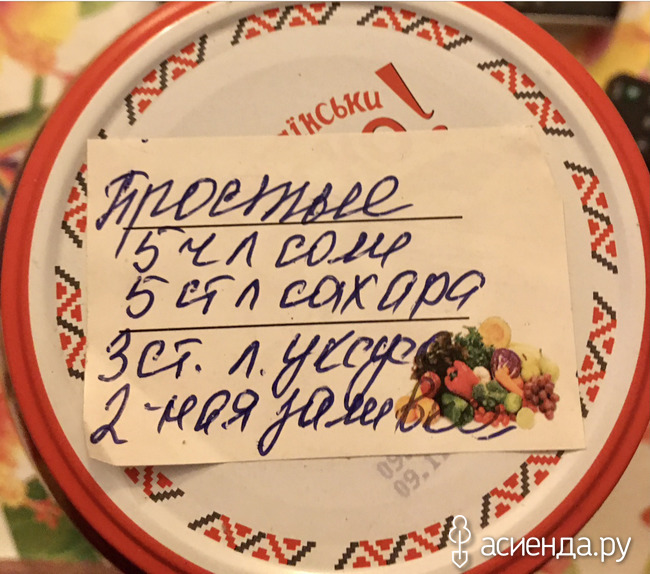 їнськи
Простые
5 ч л соли
5 ст л сахара
3 ст. л. уксуса
2-ная заливка
09.11
асиенда.ру